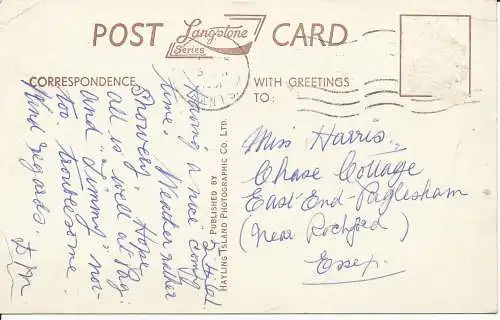 POST CARD
Langstone
Series
CORRESPONDENCE
WITH GREETINGS
TO:
Having a nice
time, Weather rather
showery. Hope
all is well at Pag:
and "Timmy" not
too troublesome.
Kind regards.
PUBLISHED BY
HAYLING ISLAND PHOTOGRAPHIC CO. LTD.
Miss Harris,
Chase Cottage
East-End-Paglesham
(Near Rochford)
Essex.